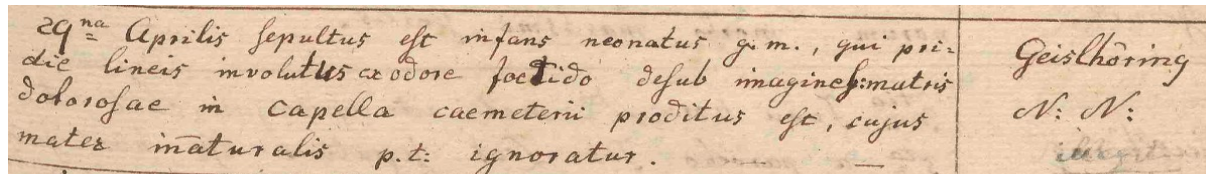 29na Aprilis sepultus est infans neonatus g. m., qui pri=
die lineis involutus ex odore foetido desub imagine S: matris
dolorosae in capella caemeterii proditus est, cujus
mater inaturalis p. t: ignoratur.
Geislhöring
N: N: